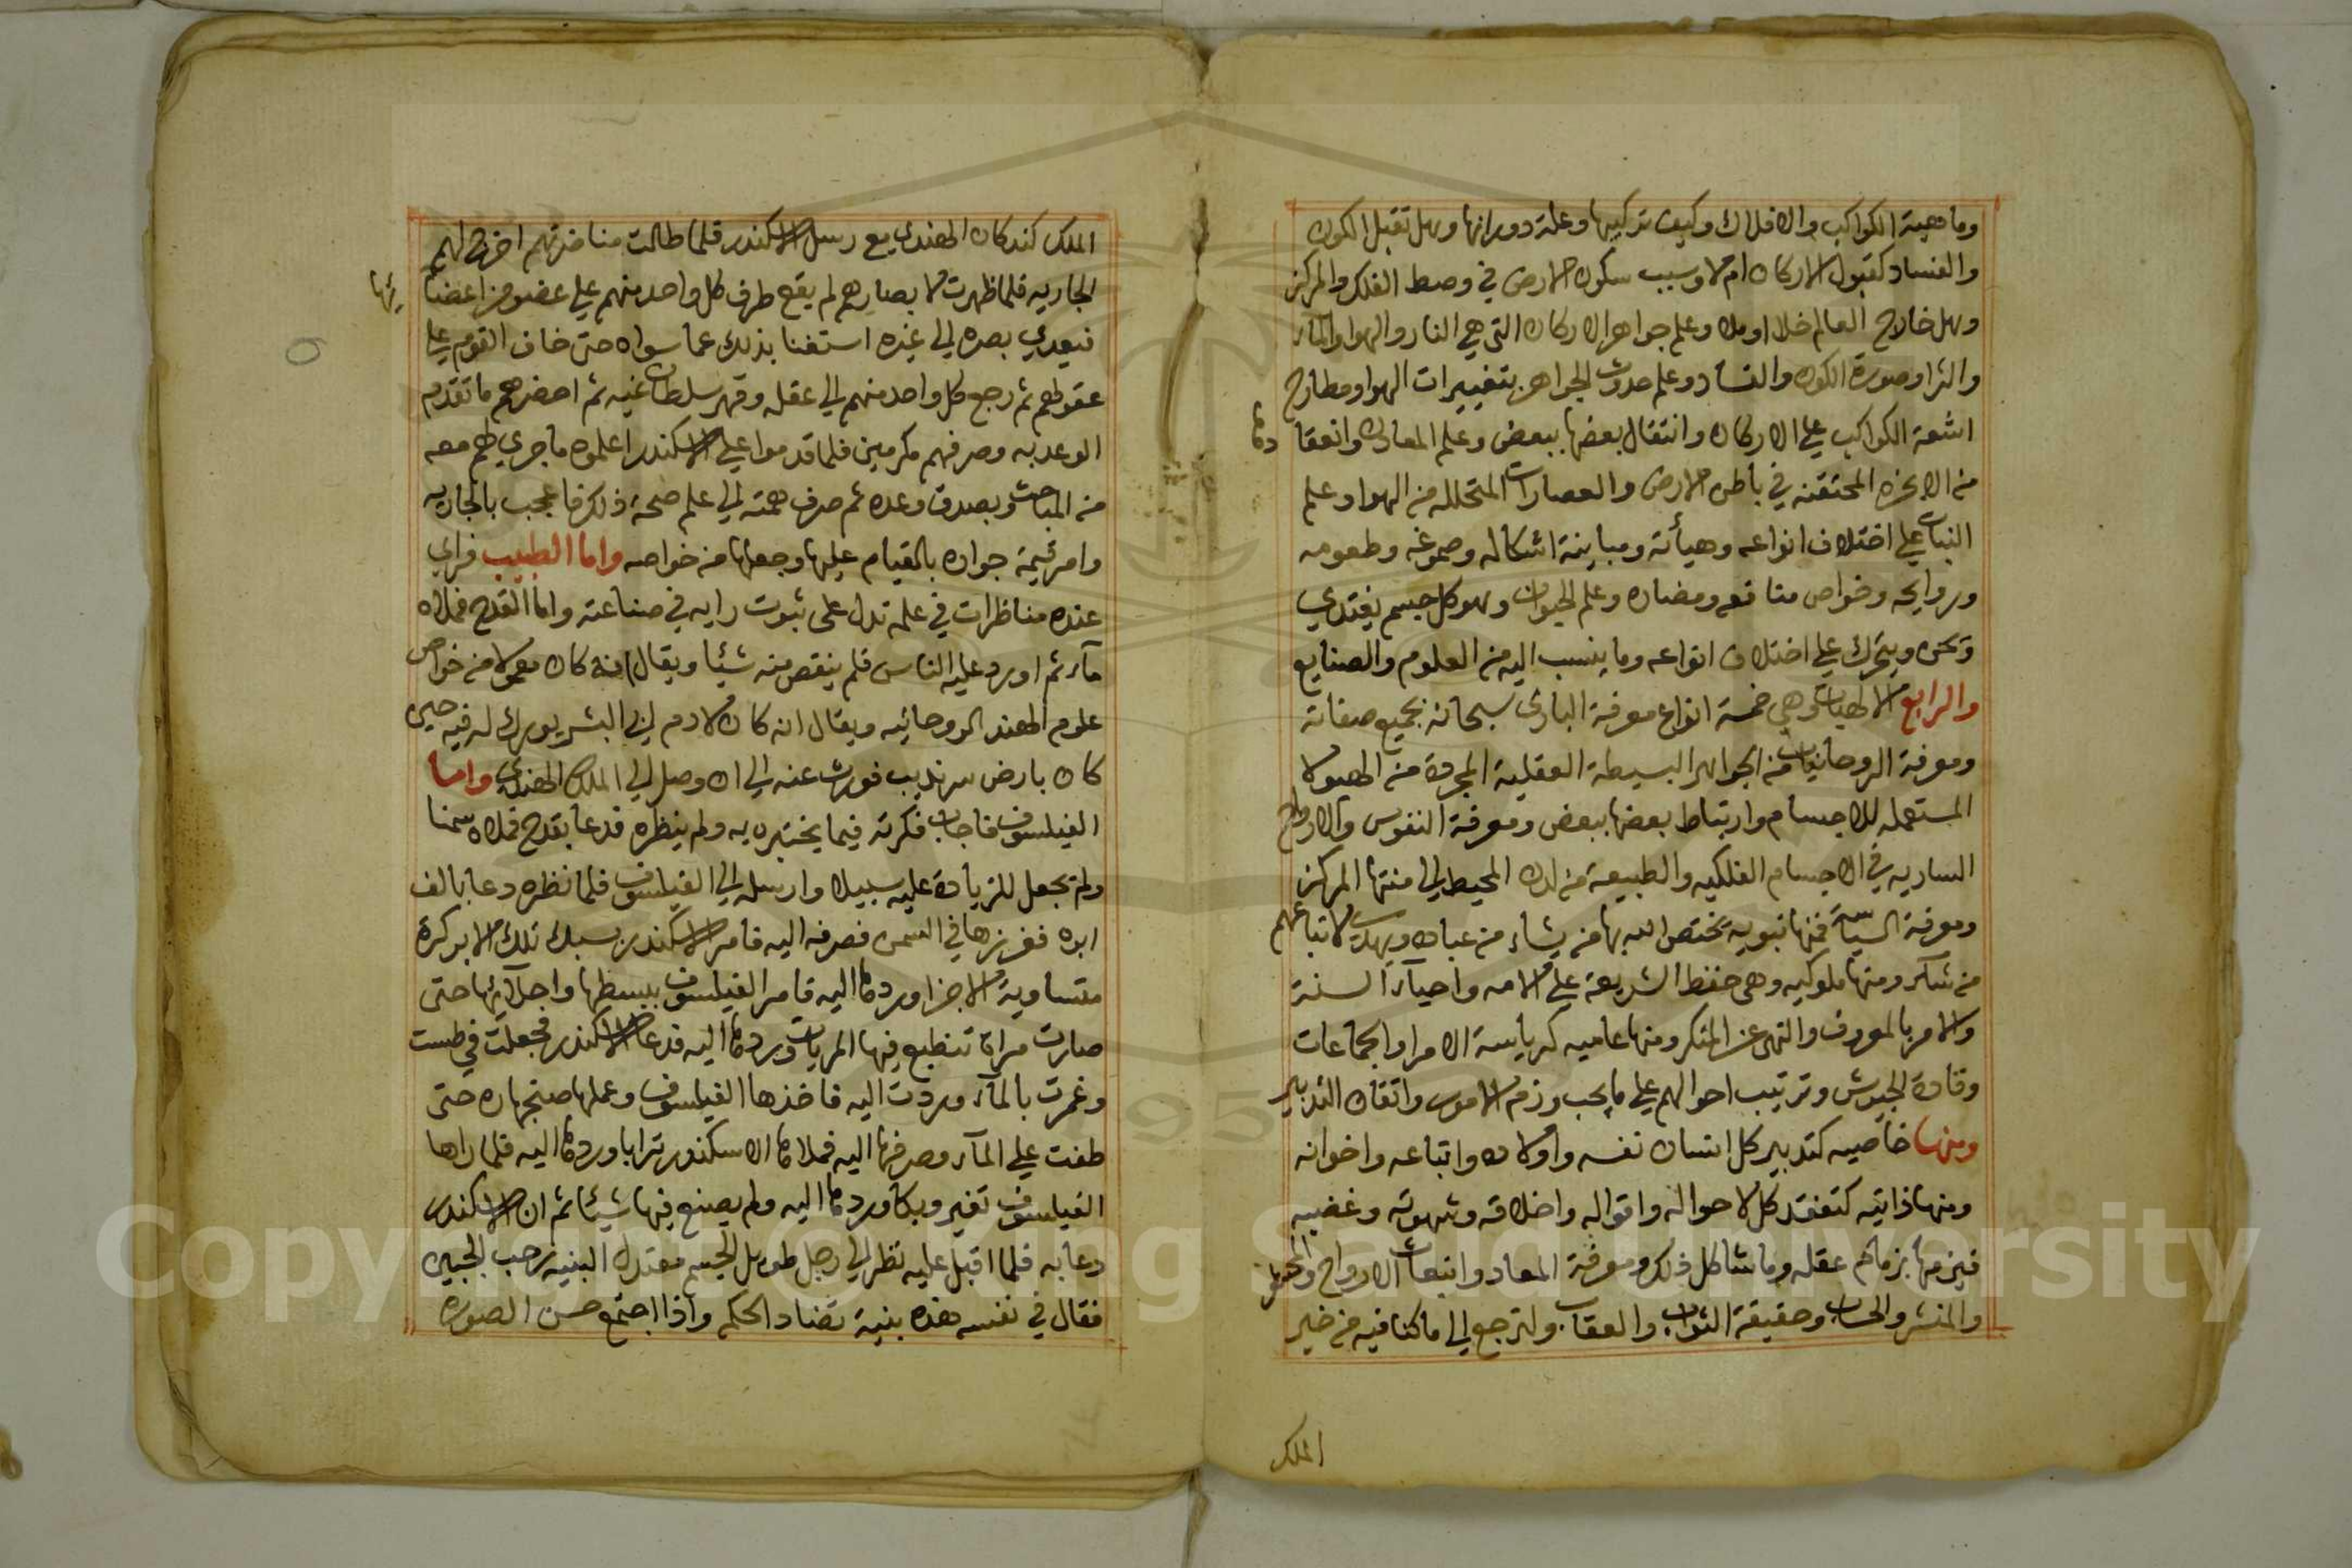 وماهية الكواكب والافلاك وكيف تركيبها وعلة دورانها وهل تقبل الكون
والفساد كقبول الاركان ام لا وسبب سكون الارض في وصط الفلك والمركز
وهل خارج العالم خلا او ملا وعلم جواهر الاركان التي هي النار والهوا والمآء
والثرا وصورة الكون والفساد وعلم حدوث الجواهر بتغييرات الهوا ومطارح
اشعة الكواكب علي الاركان وانتقال بعضها ببعض وعلم المعادن وانعقا
دها
من الابخره المحتقنه في باطن الارض والعصارات المتحلله من الهوا وعلم
النبات علي اختلاف انواعه وهيأته ومباينة اشكاله وصموغه وطعومه
وروايحه وخواص منافعه ومضاره وعلم الحيوان وهو كل جسم يغتدي
ويحس ويتحرك علي اختلاف انواعه وما ينسب اليه من العلوم والصنايع
والرابع الالهيات وهي خمسة انواع معرفة الباري سبحانه بجميع صفاته
ومعرفة الروحانيات من الجواهر البسيطة العقلية المجردة من الهيولا
المستعمله للاجسام وارتباط بعضها ببعض ومعرفة النفوس والارواح
الساريه في الاجسام الفلكيه والطبيعة من لدن المحيط الي منتها المركز
ومعرفة السياسة فمنها نبويه يختص الله بها من يشاء من عباده ويهدي لاتباعهم
من شكر ومنها ملوكيه وهي حفظ الشريعة علي الامه واحيآء السنة
والامر بالمعروف والنهي عن المنكر ومنها عاميه كرياسة الامرا والجماعات
وقادة الجيوش وترتيب احوالهم علي ما يجب وزم الامور واتقان التدبير
ومنها خاصيه كتدبير كل انسان نفسه واولاده واتباعه واخوانه
ومنها ذاتيه كتفقد كل لاحواله واقواله واخلاقه وشهوته وغضبه
فيزمها بزمام عقله وما شاكل ذلك ومعرفة المعاد وانبعاث الارواح والحشر
والمنشر والحساب وحقيقة الثواب والعقاب ولنرجع الي ما كنا فيه من خبر
الملك
الملك كندكان الهندي مع رسل الاسكندر فلما طالت مناضرتهم اخرج لهم
الجاريه فلما ظهرت لابصارهم لم يقع طرف كل واحد منهم علي عضو من اعضا
ئها
فيعدي بصره الي غيره استغنا بذلك عما سواه حتى خاف القوم علي
عقولهم ثم رجع كل واحد منهم الي عقله وقهر سلطان غيه ثم احضرهم ما تقدم
الوعد به وصرفهم مكرمين فلما قدموا علي الاسكندر اعلموه ما جري لهم معه
من المباحث وبصدق وعده ثم صرف همته الي علم صحة ذلك فاعجب بالجاريه
وامر قيمة جواره بالقيام عليها وجعلها من خواصه واما الطبيب فراي
عنده مناظرات في علمه تدل على ثبوت رايه في صناعته واما القدح فملاه
مآء ثم اورد عليه الناس فلم ينقص منه شيئا ويقال انه كان معمولا من خواص
علوم الهند الروحانيه ويقال انه كان لادم ابي البشر بورك له فيه حين
كان بارض سرنديب فورث عنه الي ان وصل الي الملك الهندي واما
الفيلسوف فاجاب فكرته فيما يختبره به ولم ينظره فدعا بقدح فملاه سمنا
ولم يجعل للزيادة عليه سبيلا وارسله الي الفيلسوف فلما نظره دعا بالف
ابره فغرزها في السمن فصرفه اليه فامر الاسكندر بسبك تلك الابر كرة
متساوية الاجزا وردها اليه فامر الفيلسوف ببسطها واجلآئها حتى
صارت مراة تنطبع فيها المريات وردها اليه فدعا الاسكندر فجعلت في طست
وغمرت بالمآء وردت اليه فاخذها الفيلسوف وعملها صنجهاره حتى
طفت علي المآء وصرفها اليه فملاها الاسكندر ترابا وردها اليه فلما راها
الفيلسوف تغير وبكا وردها اليه ولم يصنع فيها شيئا ثم ان الاسكندر
دعا به فلما اقبل عليه نظر الي رجل طويل الجسم معتدل البنيه رحب الجبين
فقال في نفسه هذه بنية تضاد الحكم واذا اجتمع حسن الصوره
Copyright © King Saud University